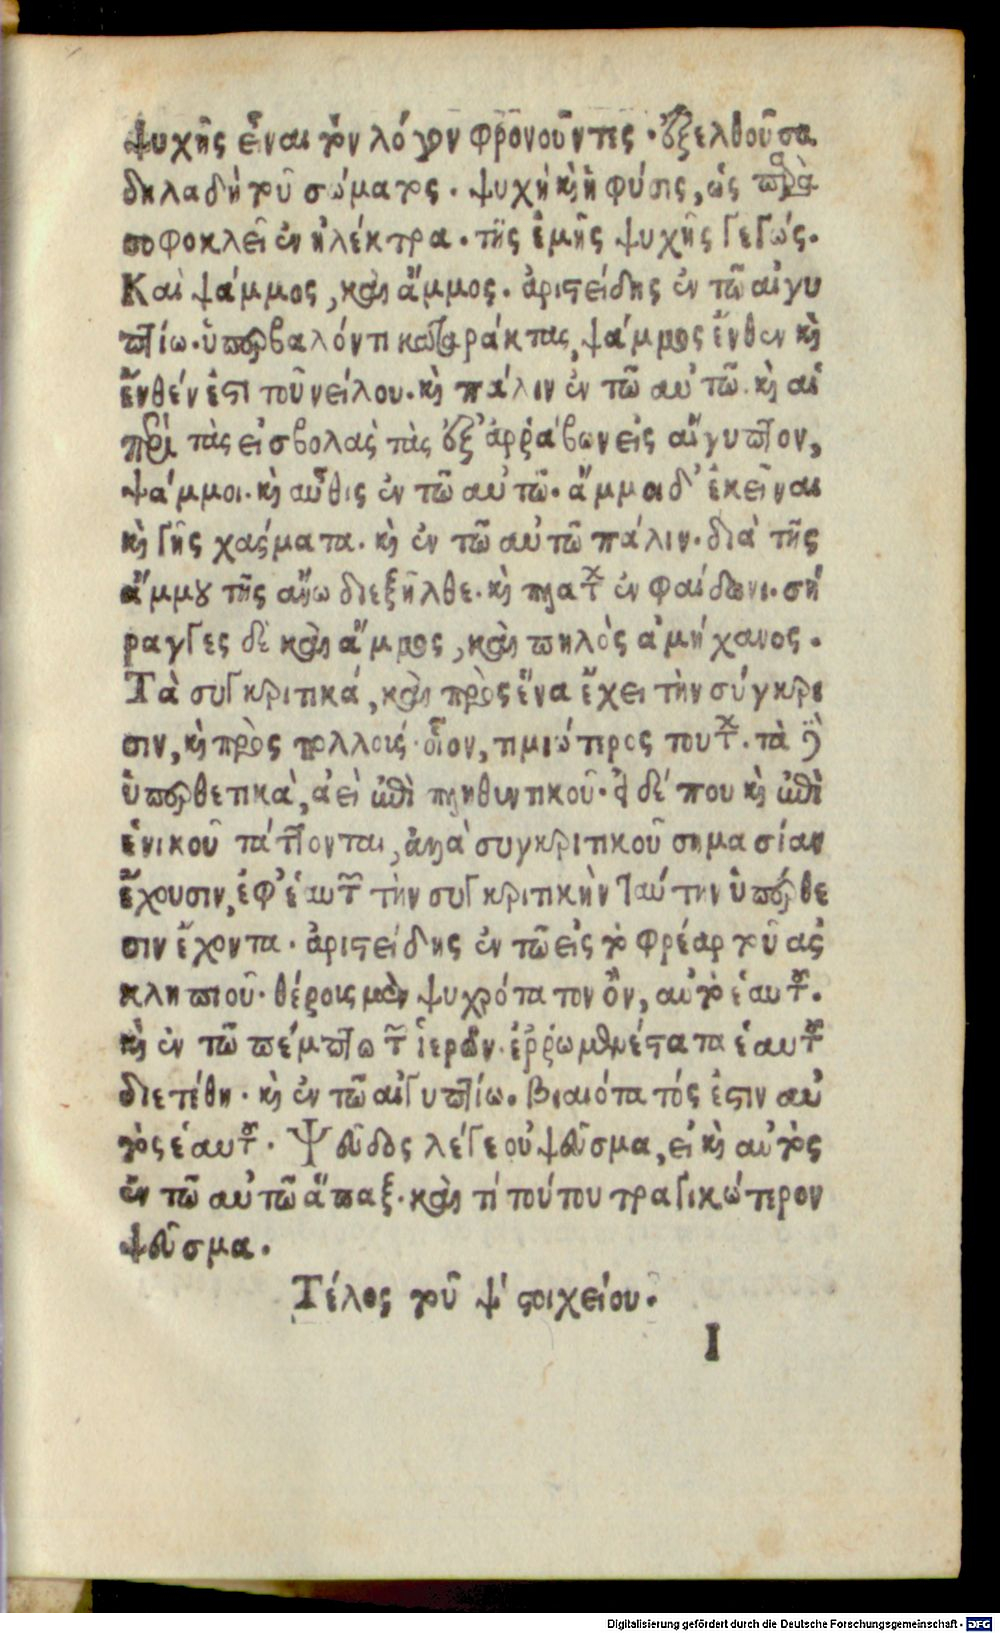 ψυχῆς εἶναι τὸν λόγον φρονοῦντες. ἐξελθοῦσα
δηλαδὴ τοῦ σώματος. ψυχὴ κὴ ἡ φύσις, ὡς παρὰ
σοφοκλεῖ ἐν ἠλέκτρα. τῆς ἐμῆς ψυχῆς γεγώς.
Καὶ ψάμμος, καὶ ἄμμος. ἀριστείδης ἐν τῶ αἰγυ
πτίω. ὑπερβαλόντι καταράκτας, ψάμμος ἔνθεν κὴ
ἔνθέν ἐστι τοῦ νείλου. κὴ πάλιν ἐν τῶ αὐτῶ. κὴ αἱ
περὶ τὰς εἰσβολὰς τὰς ἐξ ἀρράβων εἰς αἴγυπτον,
ψάμμοι. κὴ αὖθις ἐν τῶ αὐτῶ. ἄμμοι δ' ἐκεῖναι
κὴ γῆς χάσματα. κὴ ἐν τῶ αὐτῶ πάλιν. διὰ τῆς
ἄμμου τῆς ἄνω διεξῆλθε. κὴ πλάτ ἐν φαίδωνι. σή
ραγγες δὲ καὶ ἄμμος, καὶ πηλὸς ἀμήχανος.
Τὰ συγκριτικά, καὶ πρὸς ἕνα ἔχει τὴν σύγκρι
σιν, κὴ πρὸς πολλούς. οἷον, τιμιώτερος τοῦτ. τὰ δὲ
ὑπερθετικὰ, ἀεὶ ἐπὶ πληθυντικοῦ. εἰ δέ που κὴ ἐπὶ
ἑνικοῦ τάττονται, ἀλλὰ συγκριτικοῦ σημασίαν
ἔχουσιν, ἐφ' ἑαυτ τὴν συγκριτικὴν ταύτην ὑπέρθε
σιν ἔχοντα. ἀριστείδης ἐν τῶ εἰς τὸ φρέαρ τοῦ ἀσ
κληπιοῦ. θέρους μὲν ψυχρότατον ὂν, αὐτὸ ἑαυτοῦ.
κὴ ἐν τῶ πέμπτω τῶν ἱερῶν. ἐρρωμενέστατα ἑαυτοῦ
διετέθη. κὴ ἐν τῶ αἰγυπτίω. βιαιότατός ἐστιν αὐ
τὸς ἑαυτοῦ. Ψεῦδος λέγε οὐ ψεῦσμα, εἰ κὴ αὐτὸς
ἐν τῶ αὐτῶ ἅπαξ. καὶ τί τούτου τραγικώτερον
ψεῦσμα.
Τέλος τοῦ ψ' στοιχείου.
I
Digitalisierung gefördert durch die Deutsche Forschungsgemeinschaft - DFG